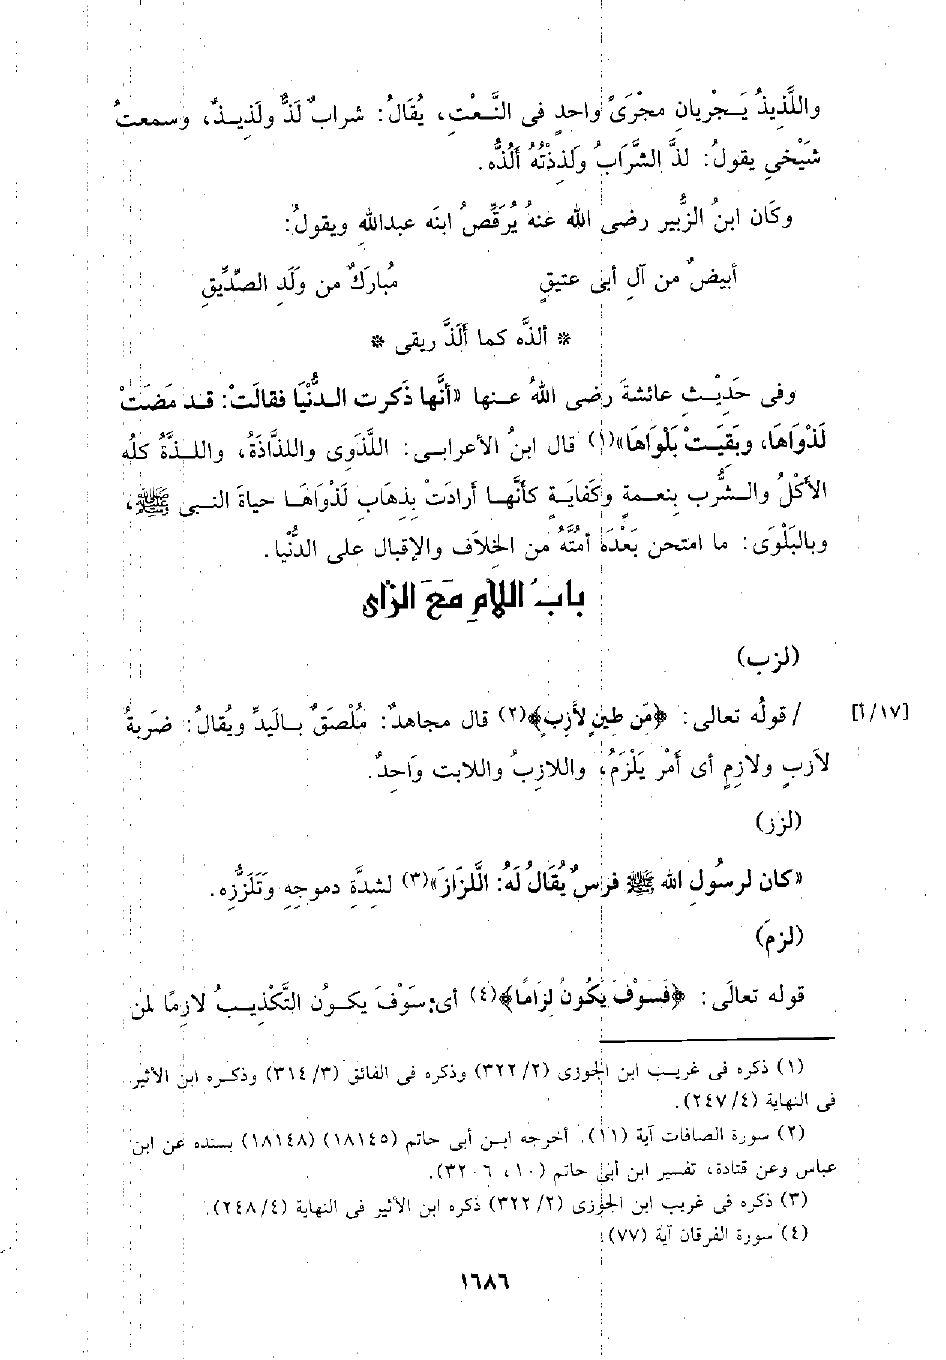 واللَّذيذُ يَجْريانِ مجْرَىً واحدٍ فى النَّعْتِ، يُقَالُ: شرابٌ لَذٌّ ولَذيذٌ، وسمعتُ
شَيْخي يقولُ: لذَّ الشَّرَابُ ولَذِذْتُهُ أَلَذُّه.
وكَان ابنُ الزُّبير رضى الله عنهُ يُرَقِّصُ ابنَه عبدالله ويقولُ:
أبيضٌ من آلِ أبى عتيقٍ مُبارَكٌ من ولَدِ الصِّدِّيقِ
* ألذَّه كما أَلَذَّ ريقى *
وفى حَدِيْثِ عائشةَ رضى اللهُ عنها «أنَّها ذَكرت الدُّنْيَا فقالَتْ: قد مَضَتْ
لَذْوَاهَا، وبَقيَتْ بَلْوَاهَا»(١) قال ابنُ الأعرابى: اللَّذْوَى واللذَّاذَةُ، واللذَّةُ كلُه
الأكْلُ والشُّرب بنعمةٍ وكفايَةٍ كأنَّها أرادَتْ بذهاب لَذْوَاهَا حياةَ النبى ﷺ،
وبالبَلْوَى: ما امتحن بَعْدَهُ أُمتُهُ من الخِلاَف والإقبال على الدُّنْيا.
بابُ اللاَّمِ مَعَ الزاى
(لزب)
[١٧/أ] / قولُه تعالى: ﴿مِّن طينٍ لاَّزِبٍ﴾(٢) قال مجاهدٌ: مُلْصَقٌ باليَدِّ ويُقالُ: ضَربةُ
لاَزبٍ ولازِمٍ أى أمْر يَلْزَمُ، واللازبُ واللابت وَاحِدٌ.
(لزز)
«كان لرسُولِ الله ﷺ فرسٌ يُقَالُ لَهُ: الَّلزَازَ»(٣) لشدَّةِ دموجِهِ وَتَلَزُّزِه.
(لزمَ)
قوله تعالَى: ﴿فَسَوْفَ يَكُونُ لِزَامًا﴾(٤) أى: سَوْفَ يكونُ التَّكْذيبُ لازِمًا لمن
(١) ذكره فى غريب ابن الجوزى (٣٢٢/٢) وذكره فى الفائق (٣١٤/٣) وذكره ابن الأثير
فى النهاية (٢٤٧/٤).
(٢) سورة الصافات آية (١١). أخرجه ابن أبى حاتم (١٨١٤٥) (١٨١٤٨) بسنده عن ابن
عباس وعن قتادة، تفسير ابن أبى حاتم (١٠، ٣٢٠٦).
(٣) ذكره فى غريب ابن الجوزى (٣٢٢/٢) ذكره ابن الأثير فى النهاية (٢٤٨/٤).
(٤) سورة الفرقان آية (٧٧)
١٦٨٦